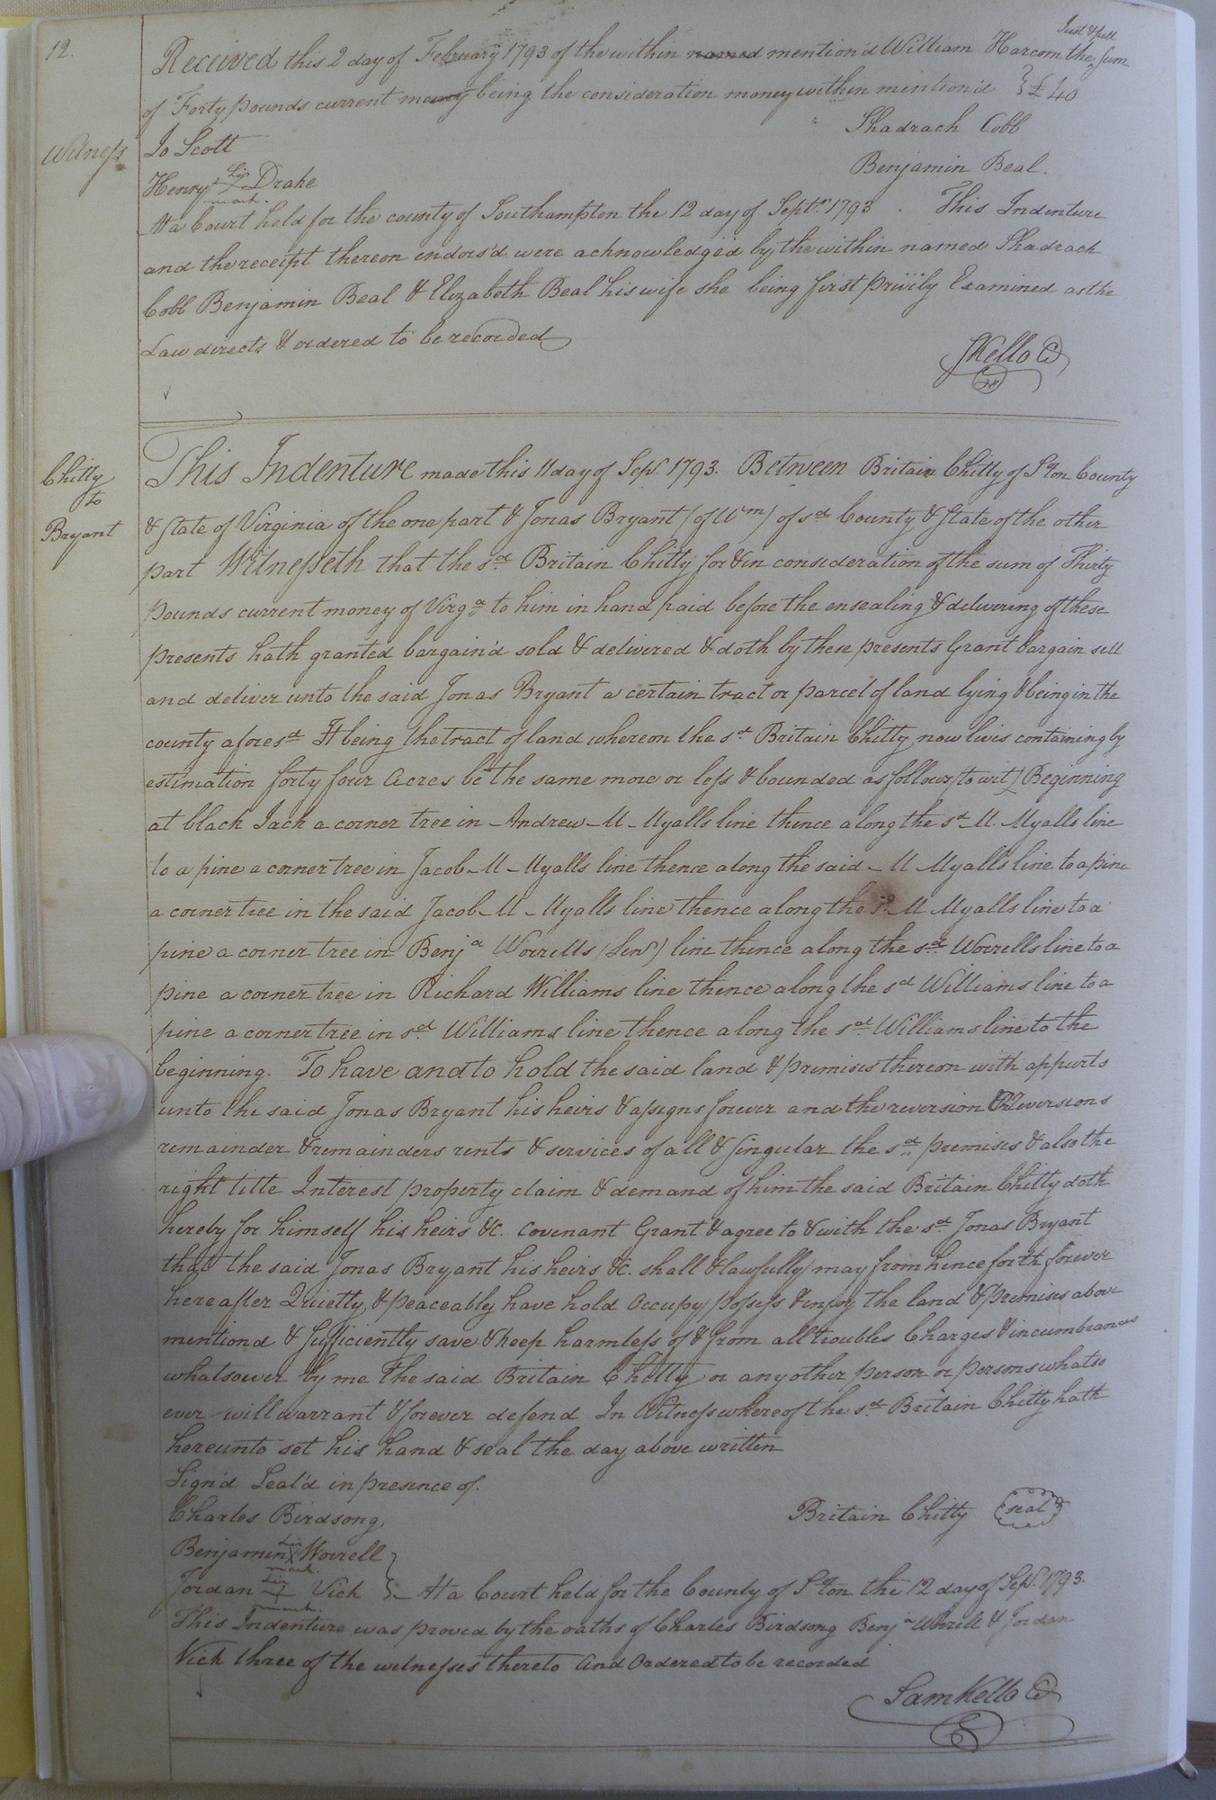 12.
Just & full
Received this 2 day of February 1793 of the within named mention'd William Harcom the sum
of Forty pounds current money being the consideration money within mention'd } £40
Shadrach Cobb
Witness Jo Scott
Benjamin Beal.
his
Henry X Drake
mark.
At a Court held for the county of Southampton the 12 day of Septr. 1793. This Indenture
and the receipt thereon endors'd were acknowledged by the within named Shadrach
Cobb Benjamin Beal & Elizabeth Beal his wife she being first privily Examined as the
Law directs & ordered to be recorded
SKello C
Chitty
to
Bryant
This Indenture made this 11 day of Sept. 1793. Between Britain Chitty of Sºton County
& State of Virginia of the one part & Jonas Bryant (of Wm) of sd County & State of the other
part Witnesseth that the sd. Britain Chitty for & in consideration of the sum of Thirty
pounds current money of Virga. to him in hand paid before the ensealing & delivering of these
presents hath granted bargain'd sold & delivered & doth by these presents Grant bargain sell
and deliver unto the said Jonas Bryant a certain tract or parcel of land lying & being in the
county aforesd. It being the tract of land whereon the sd. Britain Chitty now lives containing by
estimation forty four Acres be the same more or less & bounded as follows (to wit) Beginning
at black Jack a corner tree in Andrew M-Myalls line thence along the sd. M. Myalls line
to a pine a corner tree in Jacob M-Myalls line thence along the said M Myalls line to a pine
a corner tree in the said Jacob M-Myalls line thence along the sd. M Myalls line to a
pine a corner tree in Benja Worrells (Senr) line thence along the sd. Worrells line to a
pine a corner tree in Richard Williams line thence along the sd Williams line to a
pine a corner tree in sd. Williams line thence along the sd. Williams line to the
beginning. To have and to hold the said land & premises thereon with appurts
unto the said Jonas Bryant his heirs & assigns forever and the reversion & Reversions
remainder & remainders rents & services of all & singular the sd. premises & also the
right title Interest property claim & demand of him the said Britain Chitty doth
hereby for himself his heirs &c. Covenant Grant & agree to & with the sd. Jonas Bryant
that the said Jonas Bryant his heirs &c. shall & lawfully may from henceforth forever
hereafter Quietly & peaceably have hold Occupy possess & enjoy the land & Premises above
mentiond & Sufficiently save & keep harmless of & from all troubles Charges & incumbrances
whatsoever by me The said Britain Chitty or any other person or persons whatso
ever will warrant & forever defend In Witness whereof the sd. Britain Chitty hath
hereunto set his hand & seal the day above written
Sign'd Seal'd in presence of.
Charles Birdsong
Britain Chitty seal
his
Benjamin X Worrell
mark.
his
Jordan Vick } At a Court held for the County of Sºton the 12 day of Sept. 1793.
mark
This Indenture was proved by the oaths of Charles Birdsong Benja Worrell & Jordan
Vick three of the witnesses thereto And Ordered to be recorded
Sam Kello C